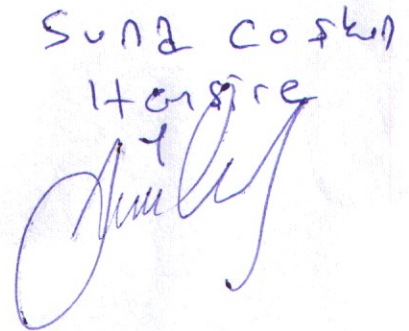 Suna Coşkun
Hemşire